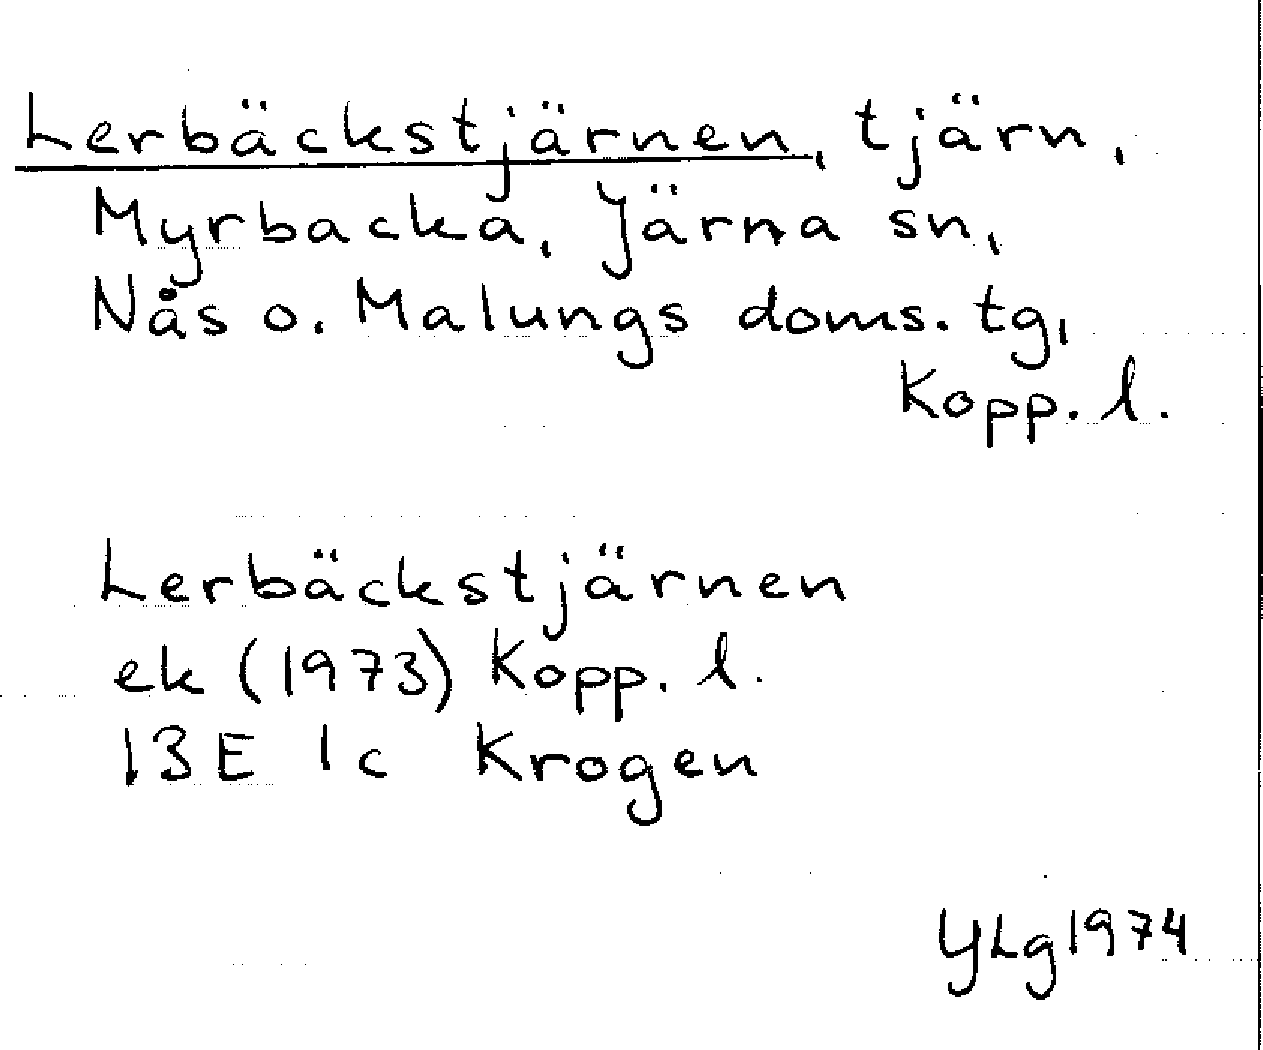 Lerbäckstjärnen, tjärn,
Myrbacka, Järna sn,
Nås o. Malungs doms. tg,
Kopp. l.
Lerbäckstjärnen
ek (1973) Kopp. l.
13E 1c Krogen
YLg 1974